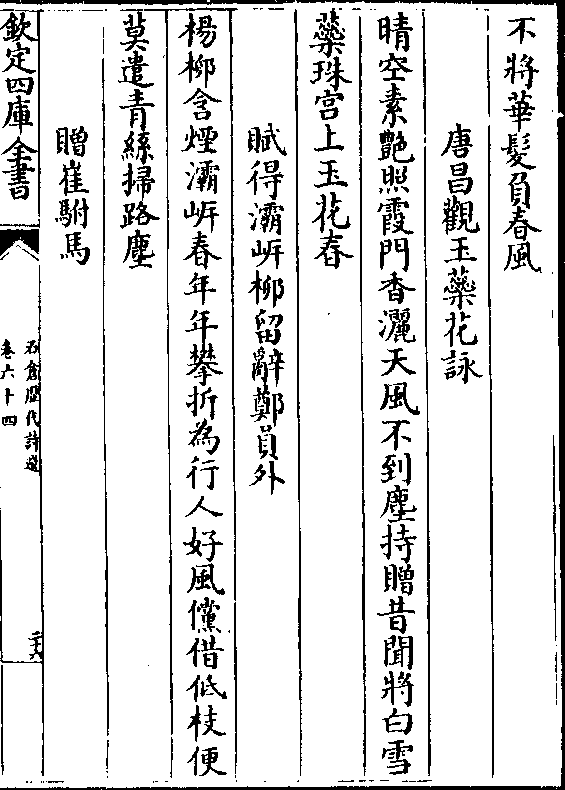 不將華髮負春風
唐昌觀玉蘂花詠
晴空素艷照霞門香灑天風不到塵持贈昔聞將白雪
蘂珠宫上玉花春
賦得灞岍柳留辭鄭員外
楊柳含煙灞岍春年年攀折為行人好風儻借低枝便
莫遣青絲掃路塵
贈崔駙馬
欽定四庫全書
石倉歷代詩選
卷六十四
二六